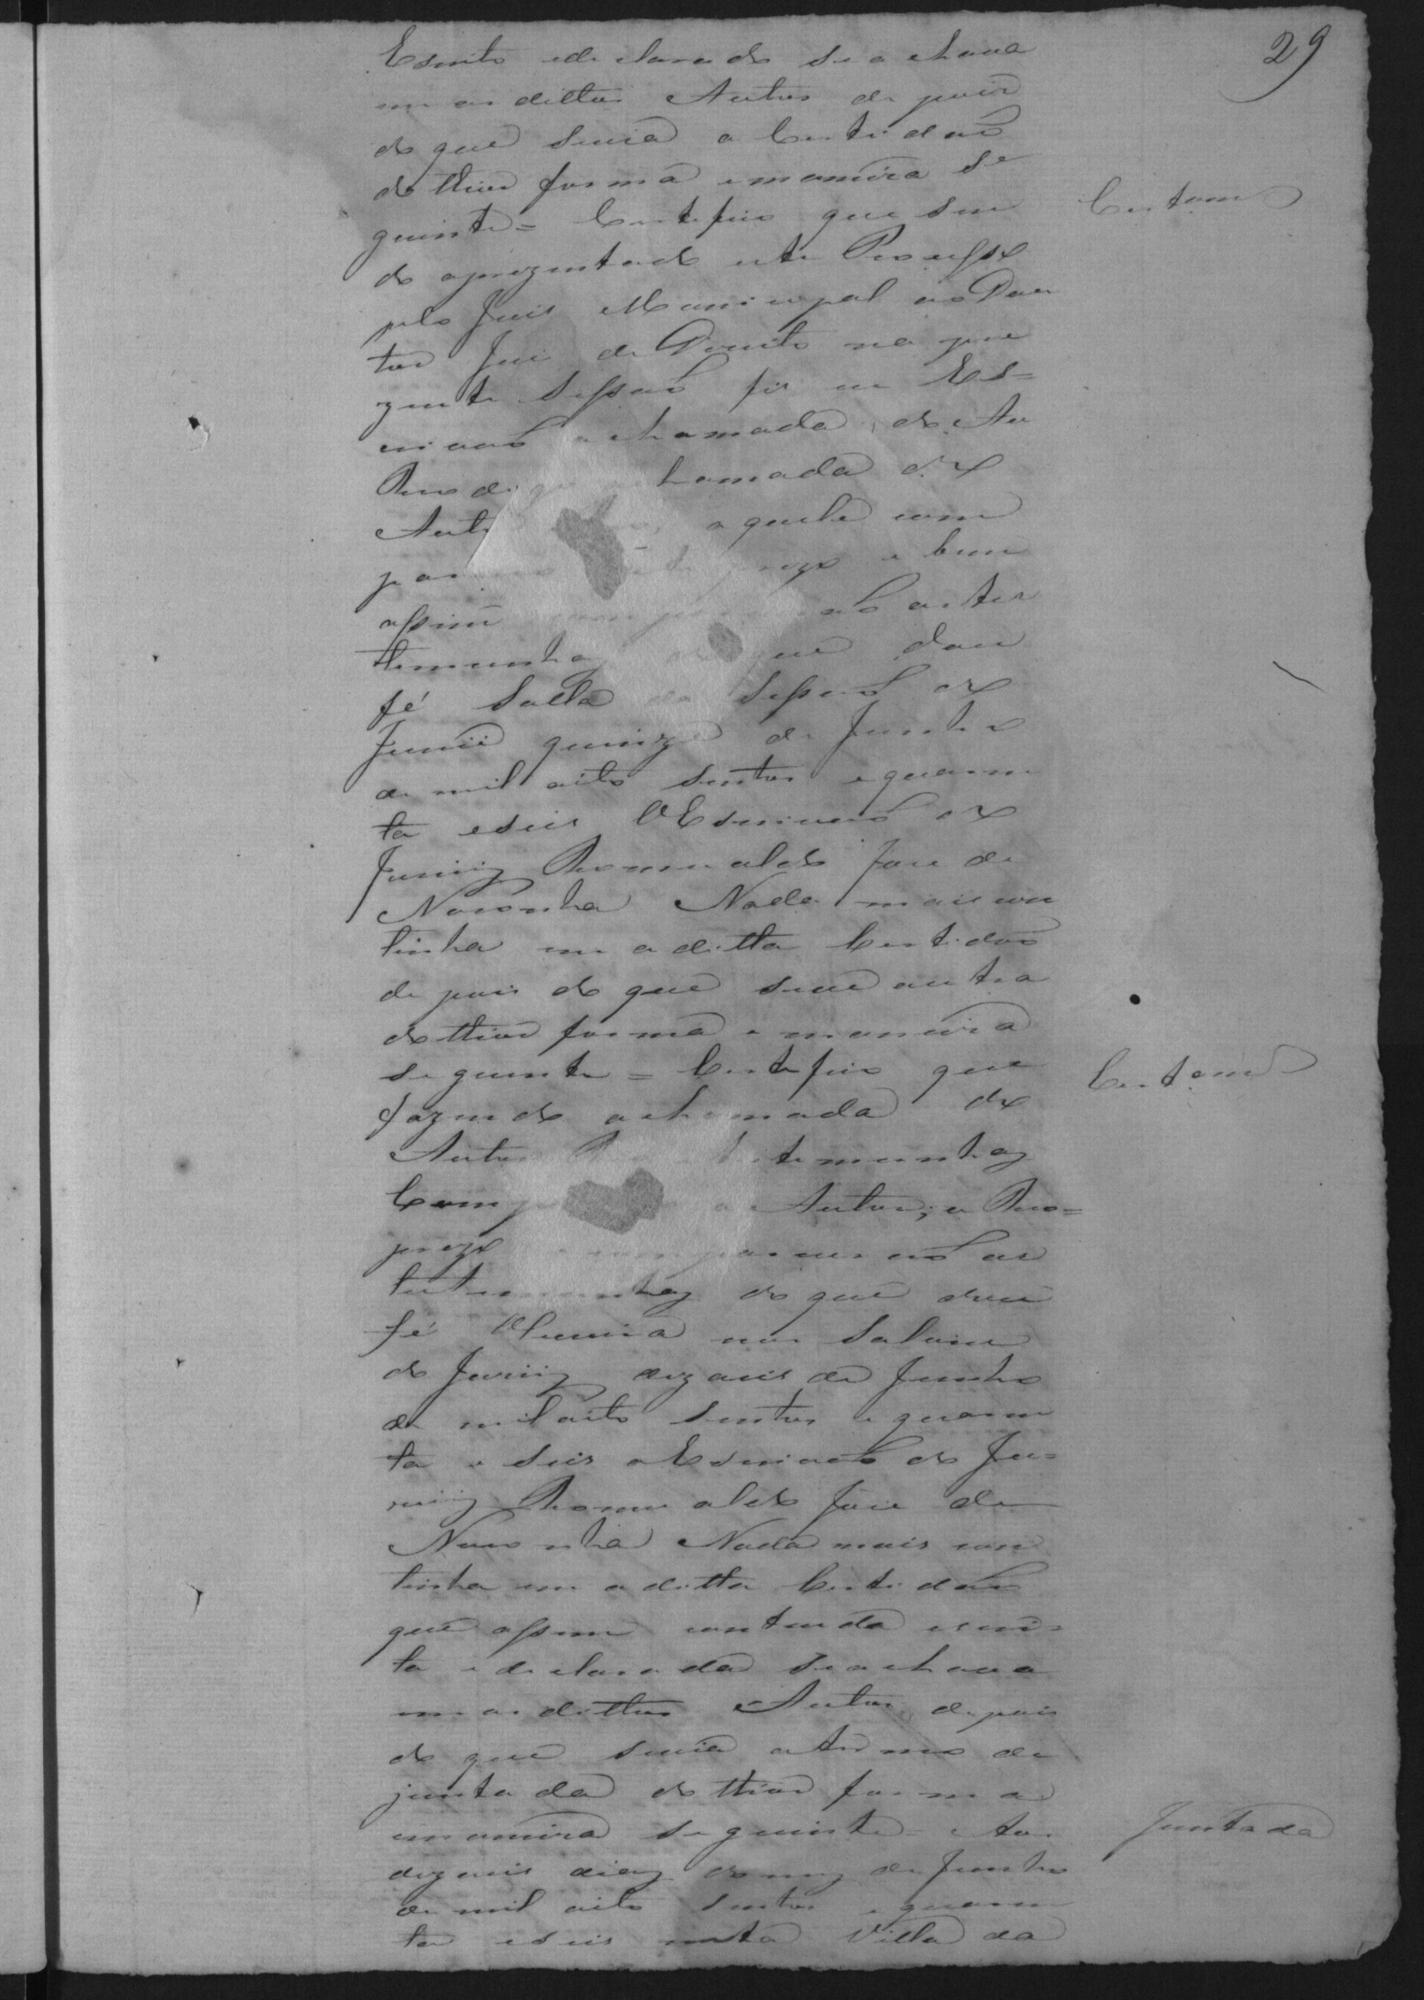 29
Escrito e declarado se achava
em os dittos Autos depois
do que seuia a Certidaõ
do thior forma e maneira se
guinte = Certefico que sen
do aprezentado este Processo
pelo Juis Municipal ao Dou
tor Juis de Direito na pre
zente Sessaõ fis eu Es=
crivaõ a chamada do Au
chamada do
Autor aquele com
prezo e bem
assim naõ as tes
temunhas do que dou
fé Salla da Sessaõ do
Jurii quinze de Junho
de mil oito sentos e quaren
ta e seis O Escrivaõ do
Juriij Romualdo Joze de
Noronha Nada mais con
tinha em a ditta Certidaõ
depois do que seuie outra
do thior forma e maneira
seguinte = Certefico que
fazendo a chamada do
Autor Reo e testemunhas
Comp o Autor, e Reo=
prezo e compareceraõ as
testemunhas do que dou
fé nas Salas
do Juriij dezaseis de Junho
de mil oito sentos e quaren
ta e seis o Escrivaõ do Ju=
riij Romualdo Joze de
Noronha Nada mais con
tinha em a ditta Certidaõ
que assim contenda escri=
ta e declarada se achava
em os dittos Autos, depois
do que seuia o termo de
juntada do thior forma
e maneira seguinte Aos
dezaseis dias do mes de Junho
de mil oito sentos e quaren
ta e seis nesta Villa da
Certam
Certam
Juntada